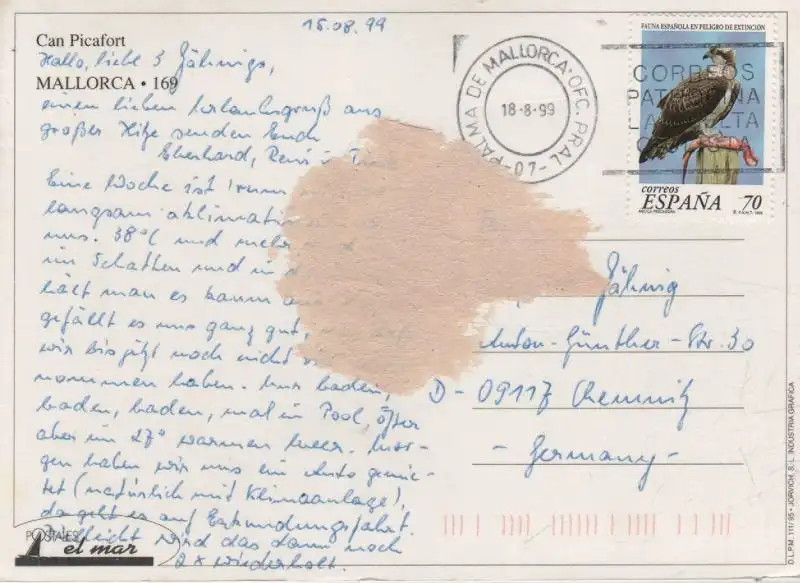 15.08.99
Can Picafort
Hallo, liebe 3 Jähnigs,
MALLORCA • 169
einen lieben Urlaubsgruß aus
großer Hitze senden Euch
Eberhard, René u.
Eine Woche ist
langsam aklimati
uns. 38°C und mehr
im Schatten und in d
hält man es kaum aus
gefällt es uns ganz gut,
wir bis jetzt noch nicht
nommen haben. Nur baden,
baden, baden, mal im Pool, öfter
aber im 27° warmen Meer. Mor-
gen haben wir uns ein Auto gemie-
tet (natürlich mit Klimaanlage),
da geht es auf Erkundungsfahrt.
Vielleicht wird das dann noch
2x wiederholt.
POSTALES
el mar
PALMA DE MALLORCA·OFC. PRAL
18-8-99
-07-
CORREOS
FAUNA ESPAÑOLA EN PELIGRO DE EXTINCIÓN
correos
ESPAÑA 70
Jähnig
Anton-Günther-Str. 30
D-09117 Chemnitz
- Germany -
D.L.P.M. 111/95 - JORVICH, S.L. INDUSTRIA GRAFICA